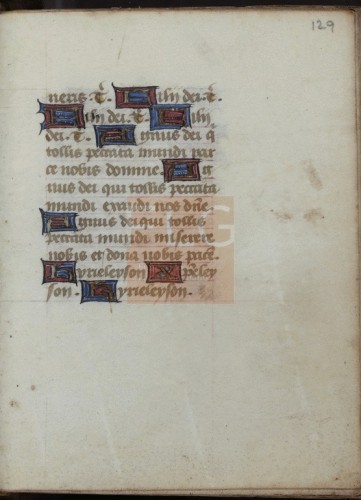 129
neris. T. Fili dei. T.
Fili dei. T. Fili
dei. T. Agnus dei q̄
tollis peccata mundi par
ce nobis domine. Ag
nus dei qui tollis peccata
mundi exaudi nos dn̄e.
Agnus dei qui tollis
peccata mundi miserere
nobis et dona nobis pacē.
Kyrieleyson Xp̄eley
son. Kyrieleyson.